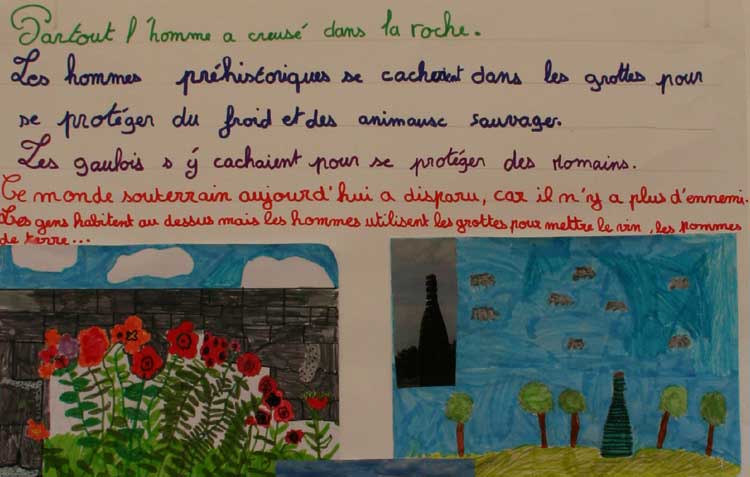 Partout l'homme a creusé dans la roche.
Les hommes préhistoriques se cachent dans les grottes pour
se protéger du froid et des animause sauvages.
Les gaulois s'y cachaient pour se protéger des romains.
Ce monde souterrain aujourd'hui a disparu, car il n'y a plus d'ennemi.
Les gens habitent au dessus mais les hommes utilisent les grottes pour mettre le vin, les pommes
de terre...